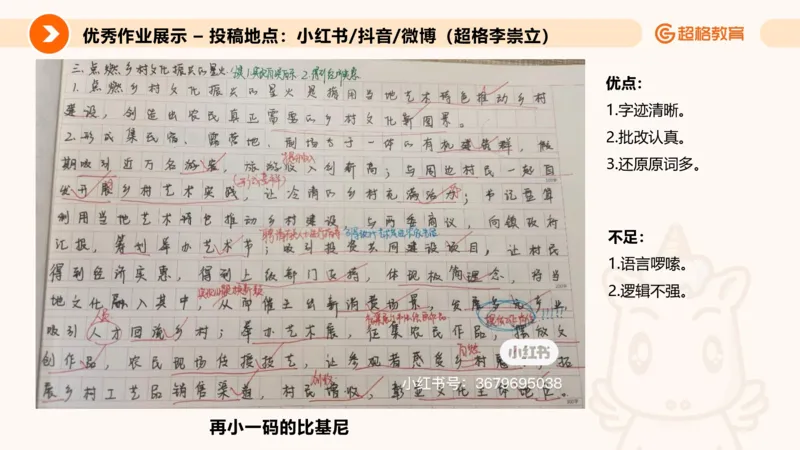 优秀作业展示 – 投稿地点：小红书/抖音/微博（超格李崇立）
超格教育
三.点燃乡村文化振兴的星火
1.点燃乡村文化振兴的星火是指用当地艺术特色推动乡村
建设，创造出农民真正需要的乡村文化新图景。
2.形成集民宿、露营地、剧场等于一体的有机建筑群，假
期吸引近万名游客，旅游收入创新高；与周边村民一起
开展乡村艺术实践，让冷清的乡村充满活力；书记盘算
利用当地艺术特色推动乡村建设，与两委商议，向镇政府
汇报，筹划举办艺术节；吸引投资共同建设项目，让村民
得到经济实惠，得到上级部门支持，体现极简理念，将当
地文化融入其中，从而催生出新消费场景，发展多元产业，
吸引人才回流乡村；举办艺术展，征集农民作品，
创作品，农民现场传授技艺，让参观者感受乡村
展乡村工艺品销售渠道，村民增收，彰显文化主体地位。
小红书
小红书号：3679695038
优点：
1.字迹清晰。
2.批改认真。
3.还原原词多。
不足：
1.语言啰嗦。
2.逻辑不强。
再小一码的比基尼